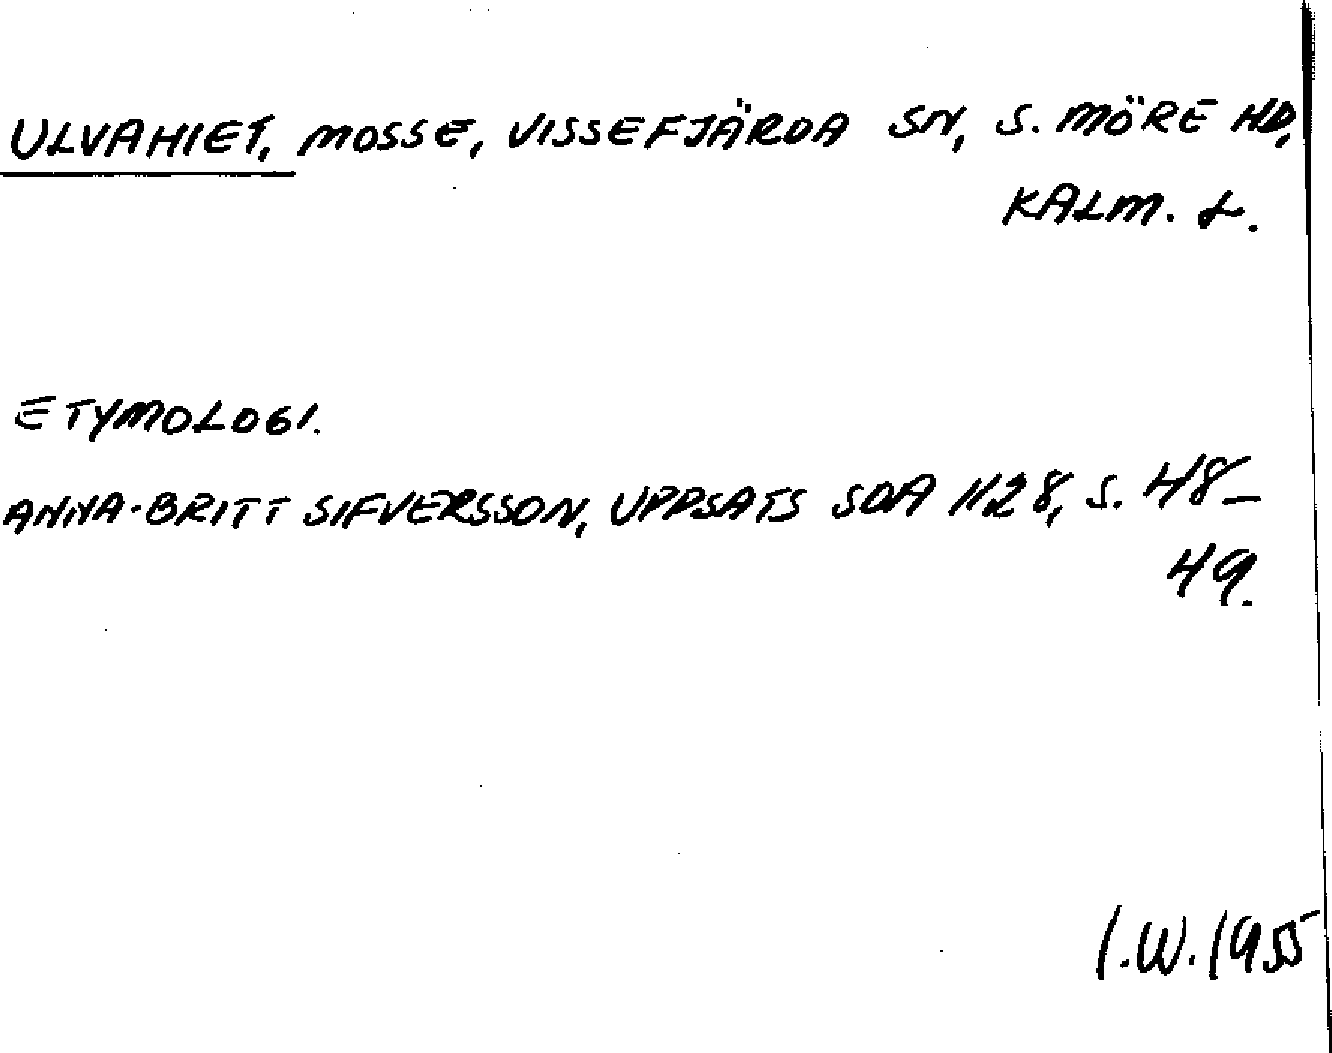 ULVAHIET, MOSSE, VISSEFJÄRDA SN, S. MÖRE HD,
KALM. L.
ETYMOLOGI.
ANNA-BRITT SIFVERSSON, UPPSATS SOA 1128, S. 48–
49.
I.W. 1955